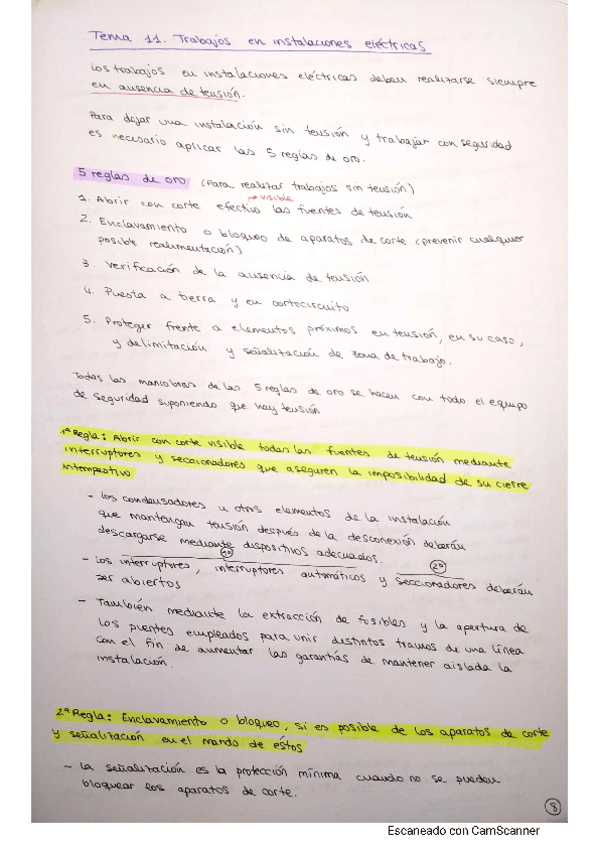 Tema 11. Trabajos en instalaciones eléctricas
Los trabajos en instalaciones eléctricas deben realizarse siempre
en ausencia de tensión.
Para dejar una instalación sin tensión y trabajar con seguridad
es necesario aplicar las 5 reglas de oro.
5 reglas de oro (Para realizar trabajos sin tensión)
→ visible
1. Abrir con corte efectivo las fuentes de tensión
2. Enclavamiento o bloqueo de aparatos de corte (prevenir cualquier
posible realimentación)
3. Verificación de la ausencia de tensión
4. Puesta a tierra y en cortocircuito
5. Proteger frente a elementos próximos en tensión, en su caso,
y delimitación y señalización de zona de trabajo.
Todas las maniobras de las 5 reglas de oro se hacen con todo el equipo
de seguridad suponiendo que hay tensión
1ª Regla: Abrir con corte visible todas las fuentes de tensión mediante
interruptores y seccionadores que aseguren la imposibilidad de su cierre
intempestivo
- Los condensadores u otros elementos de la instalación
que mantengan tensión después de la desconexión deberán
descargarse mediante dispositivos adecuados.
1º 2º
- Los interruptores, interruptores automáticos y seccionadores deberán
ser abiertos
- También mediante la extracción de fusibles y la apertura de
los puentes empleados para unir distintos tramos de una línea
con el fin de aumentar las garantías de mantener aislada la
instalación.
2ª Regla: Enclavamiento o bloqueo, si es posible de los aparatos de corte
y señalización en el mando de éstos
- La señalización es la protección mínima cuando no se pueden
bloquear los aparatos de corte.
8
Escaneado con CamScanner